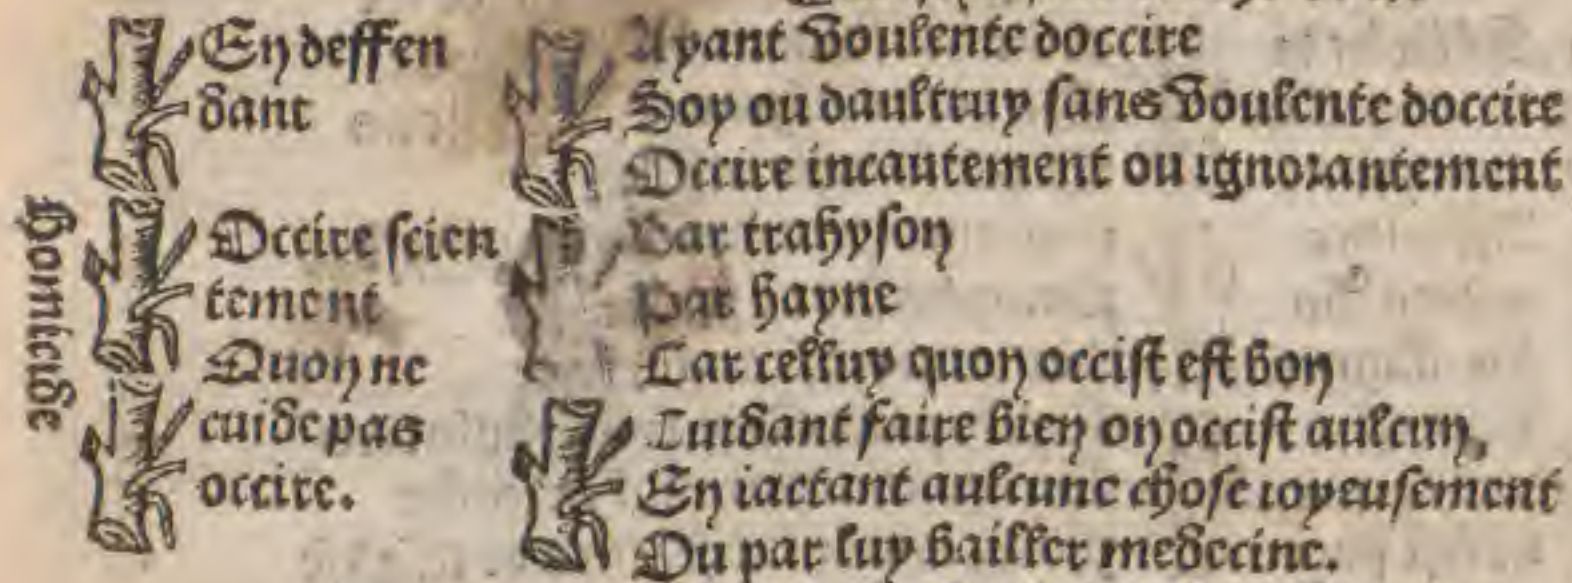 Homicide
En deffen
dant
Occire scien
tement
Quon ne
cuide pas
occire.
Ayant voulente doccire
Soy ou daultruy sans voulente doccire
Occire incautement ou ignorantement
Par trahyson
Par hayne
Car celluy quon occist est bon
Cuidant faire bien on occist aulcun,
En iactant aulcune chose ioyeusement
Ou par luy bailler medecine.